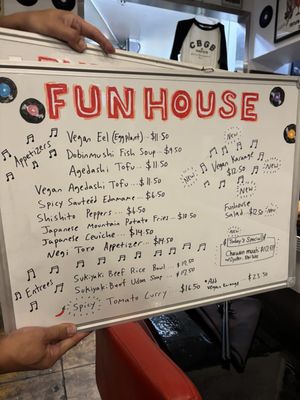 CBGB
FUNHOUSE
Appetizers
Vegan Eel (Eggplant) - $11.50
Dobinmushi Fish Soup - $9.50
Agedashi Tofu ... $11.50
Vegan Agedashi Tofu ... $11.50
Spicy Sautéd Edamame - $6.50
Shishito Peppers ... $6.50
Japanese Mountain Potato Fries ... $10.50
Japanese Ceviche ... $14.50
Negi Toro Appetizer ... $14.50
New
New
Vegan Karaage
$12.50
New
New
Funhouse
Salad - $12.50
New
Today's Special
Chawan mushi $12.50
Entrees
Sukiyaki Beef Rice Bowl ... $17.50
Sukiyaki Beef Udon Soup ... $17.50
Spicy Tomato Curry $16.50
*Add
Vegan Karaage
$23.50